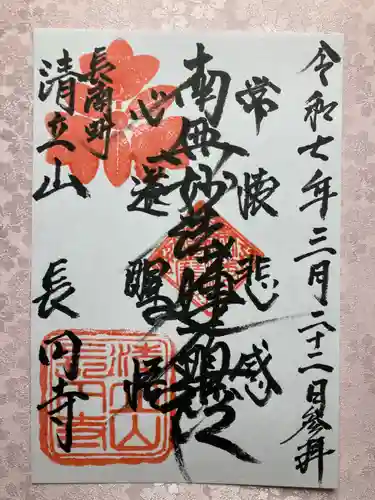 令和七年三月二十二日参拝
常懐悲感
南無妙法蓮華経
心遂醒悟
長南町
清立山 長円寺
清立山
長円寺